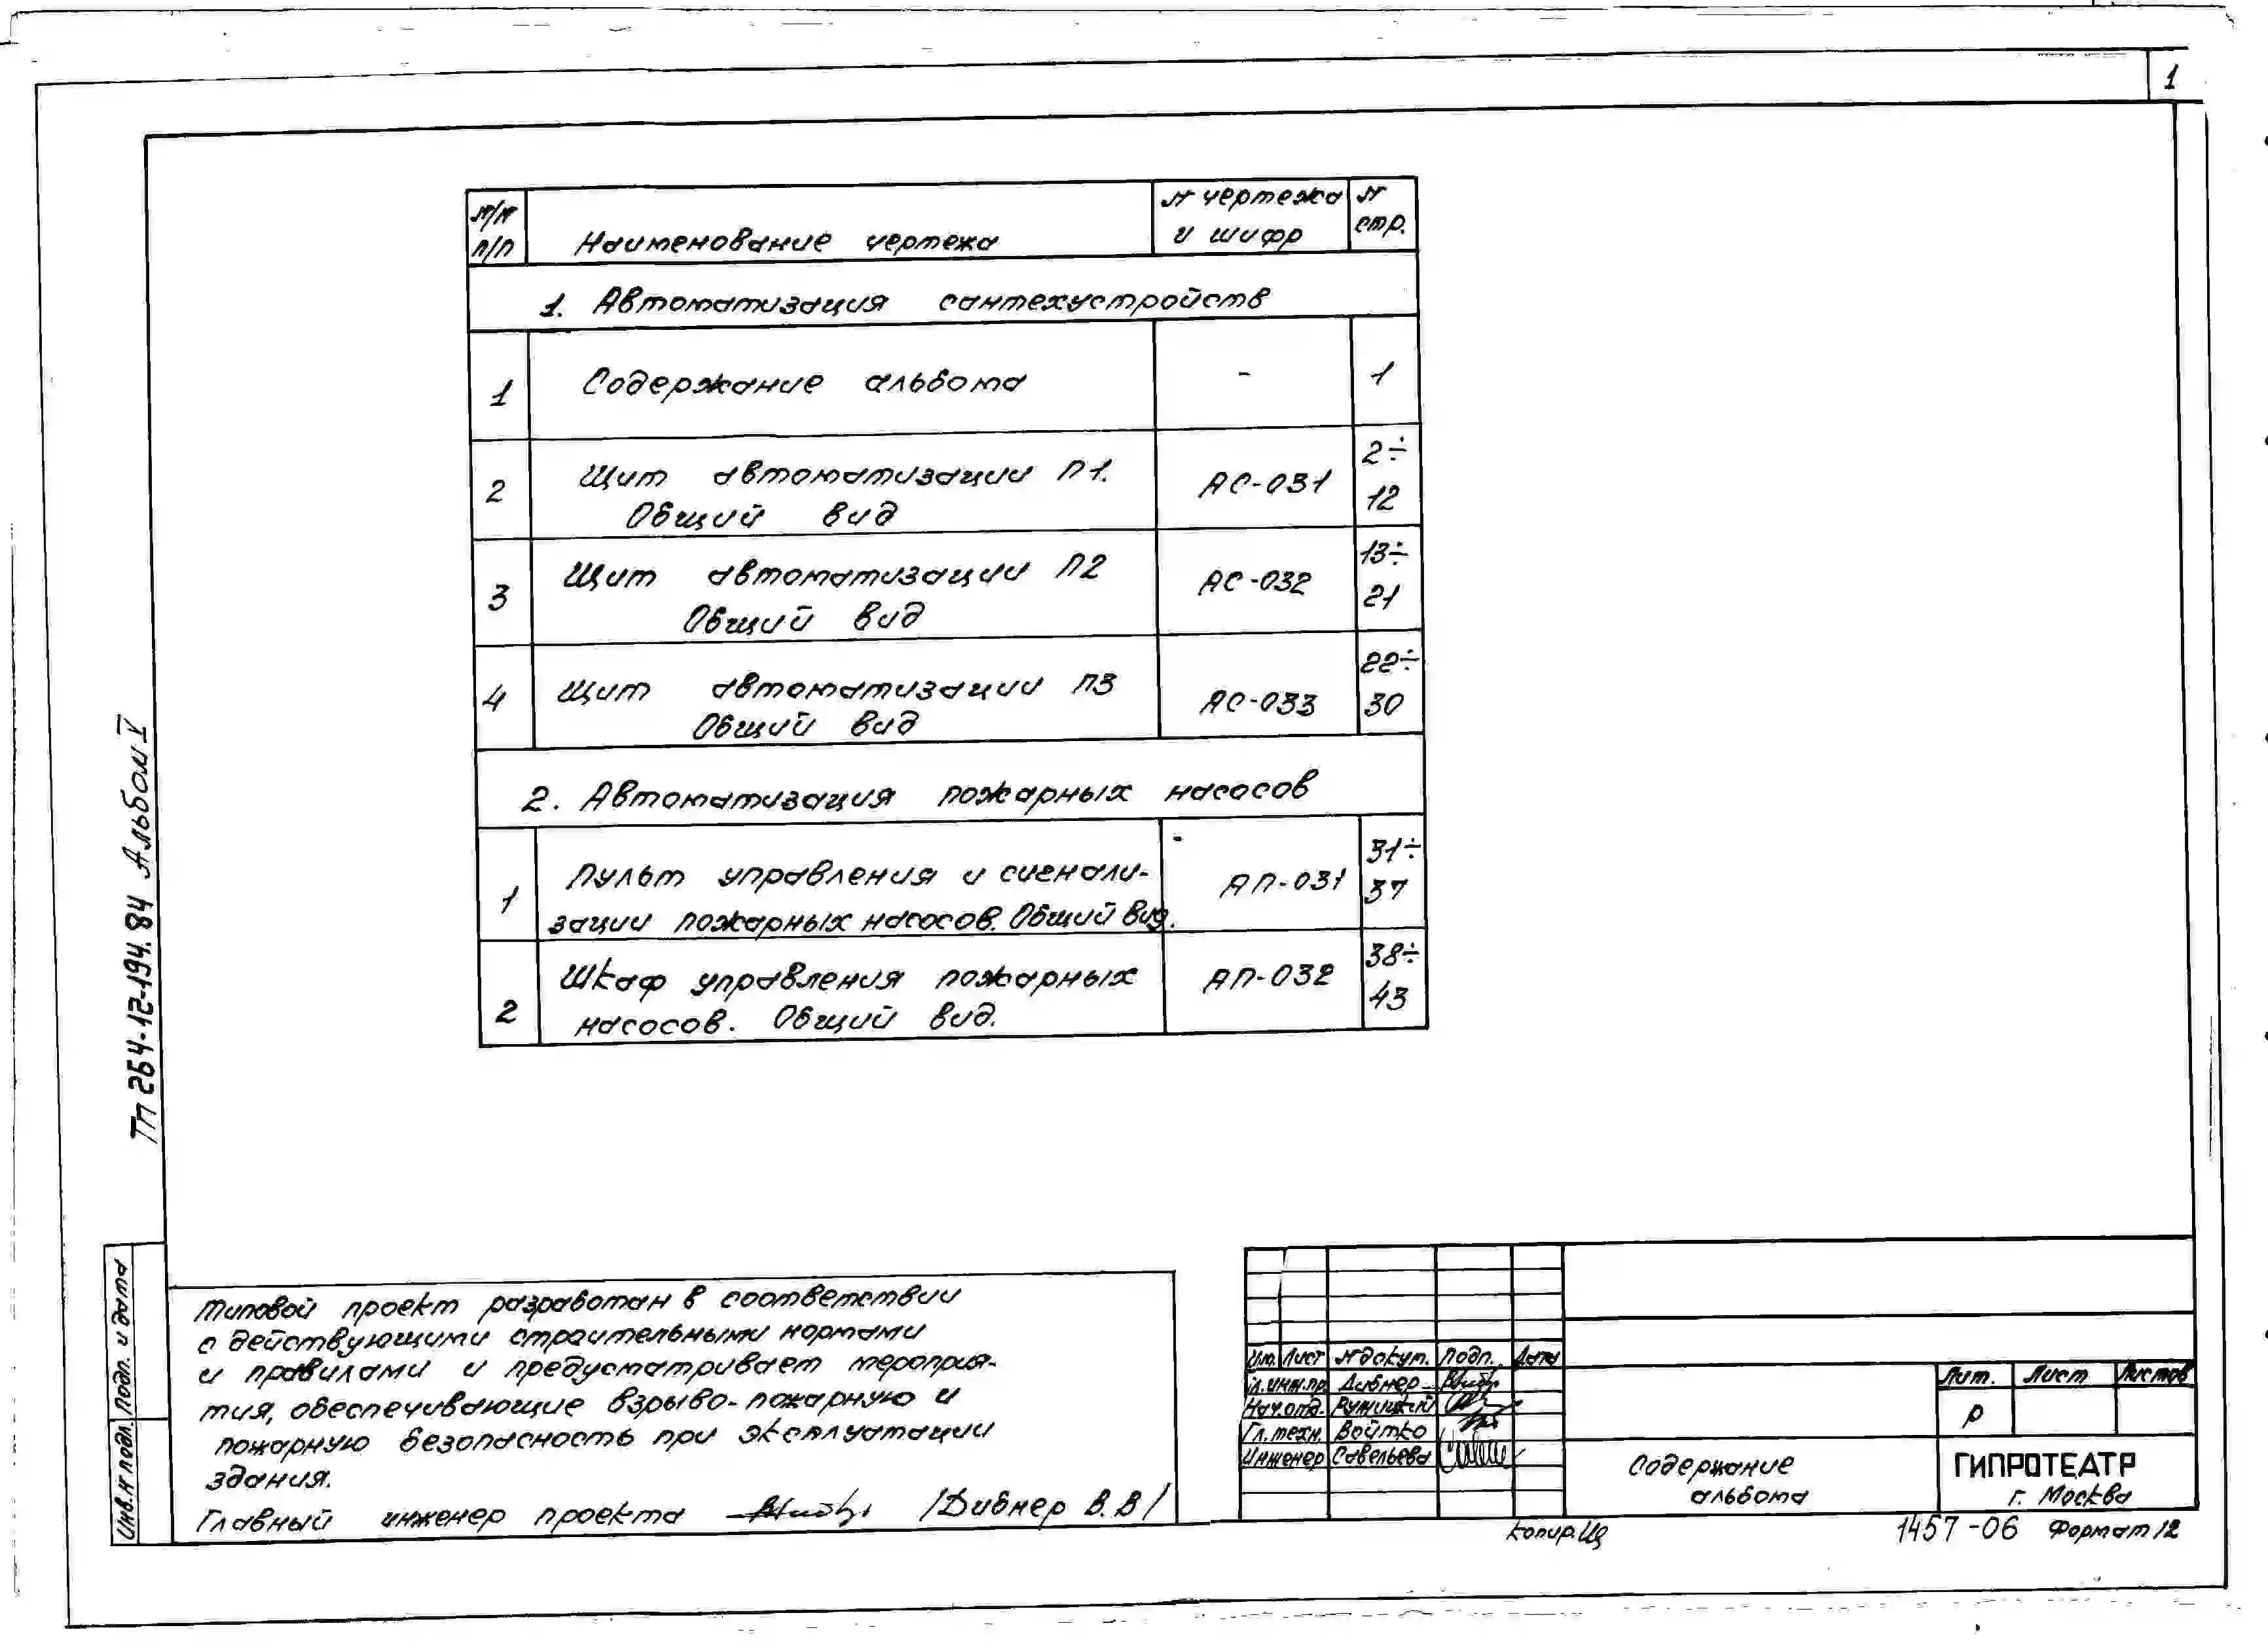 1
N/N п/п
Наименование чертежа
N чертежа и шифр
N стр.
1. Автоматизация сантехустройств
1
Содержание альбома
-
1
2
Щит автоматизации П1.
Общий вид
АС-031
2÷
12
3
Щит автоматизации П2
Общий вид
АС-032
13÷
21
4
Щит автоматизации П3
Общий вид
АС-033
22÷
30
2. Автоматизация пожарных насосов
1
Пульт управления и сигнали-
зации пожарных насосов. Общий вид.
АП-031
31÷
37
2
Шкаф управления пожарных
насосов. Общий вид.
АП-032
38÷
43
Тп 264-12-194.84 Альбом V
Инв. N подл. Подп. и дата
Типовой проект разработан в соответствии
с действующими строительными нормами
и правилами и предусматривает мероприя-
тия, обеспечивающие взрыво-пожарную и
пожарную безопасность при эксплуатации
здания.
Главный инженер проекта /Дибнер В.В/
Изм. Лист N докум. Подп. Дата
Гл.инж.пр. Дибнер
Нач.отд. Ружицкий
Гл.техн. Войтко
Инженер Савельева
Лит. Лист Листов
Р
Содержание
альбома
ГИПРОТЕАТР
г. Москва
Копир.
1457-06 Формат 12